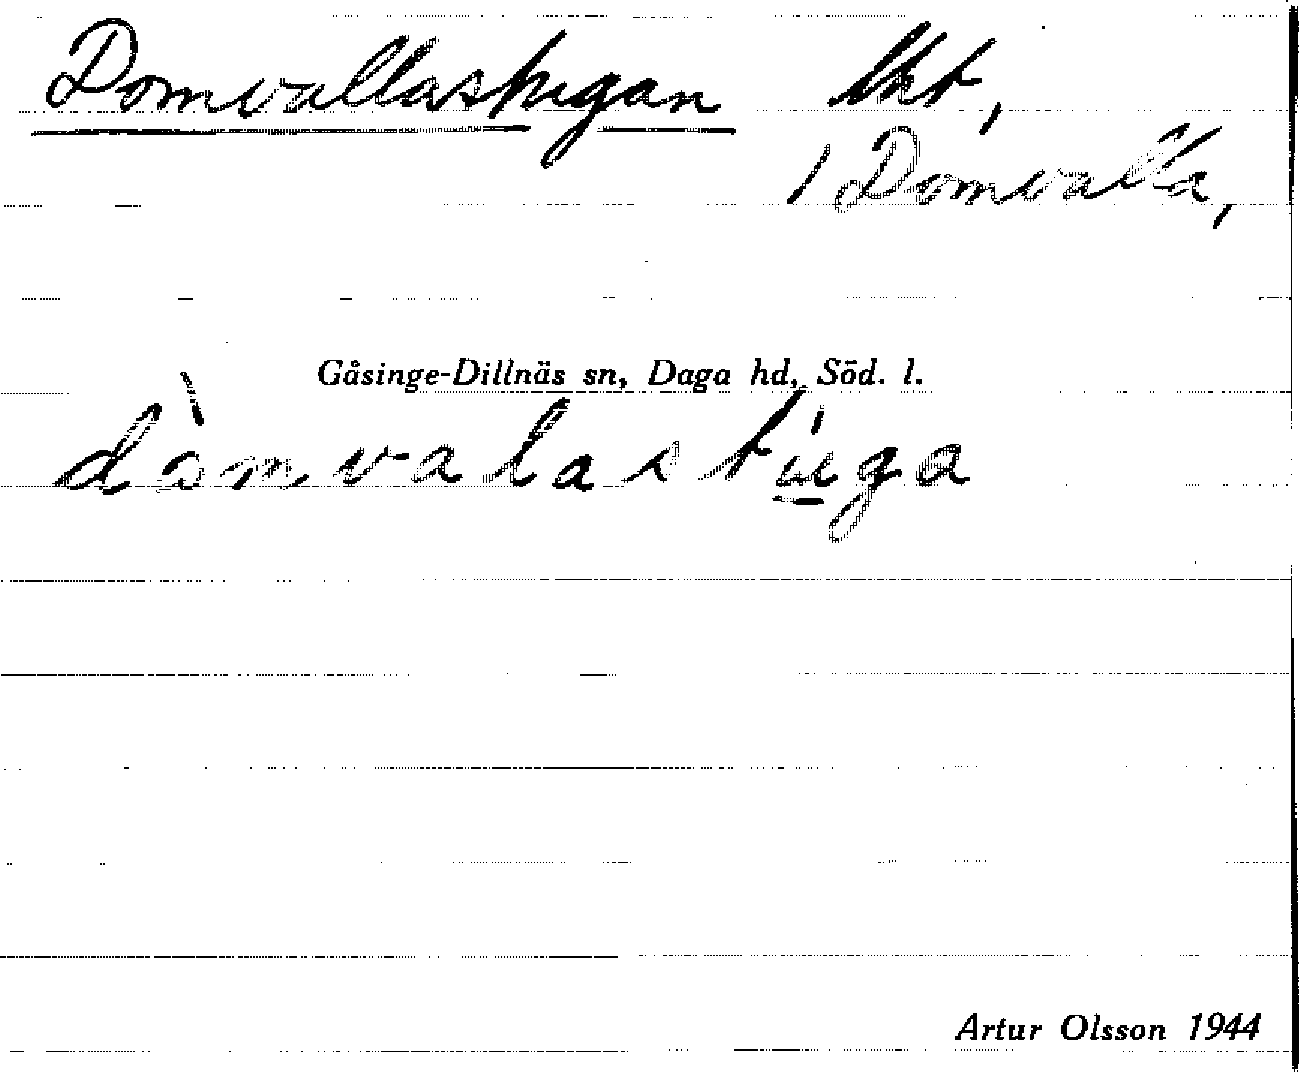 Domvallastugan lkt,
i Domvalla,
Gåsinge-Dillnäs sn, Daga hd, Söd. l.
dòmvalastúga
Artur Olsson 1944